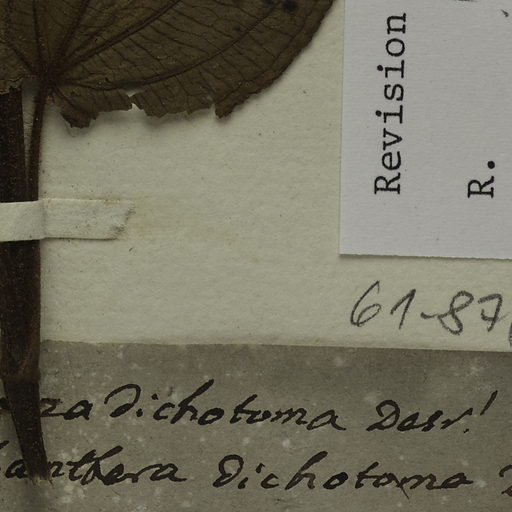 Revision
R.
61-87
za dichotoma Desr!
anthera dichotoma